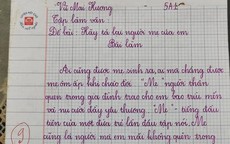 Vũ Mai Hương 5A2
Tập làm văn:
Đề bài: Hãy tả lại người mẹ của em
Bài làm
Ai cũng được mẹ sinh ra, ai mà chẳng được
mẹ ôm ấp khi chào đời. "Mẹ" người thân
quen trong gia đình trao cho em bao trìu mến
và nụ cười đầy yêu thương. "Mẹ" - tiếng đầu
tiên của một đứa trẻ lần đầu tập nói. Mẹ
cũng là người mà em mãi không quên trong
9